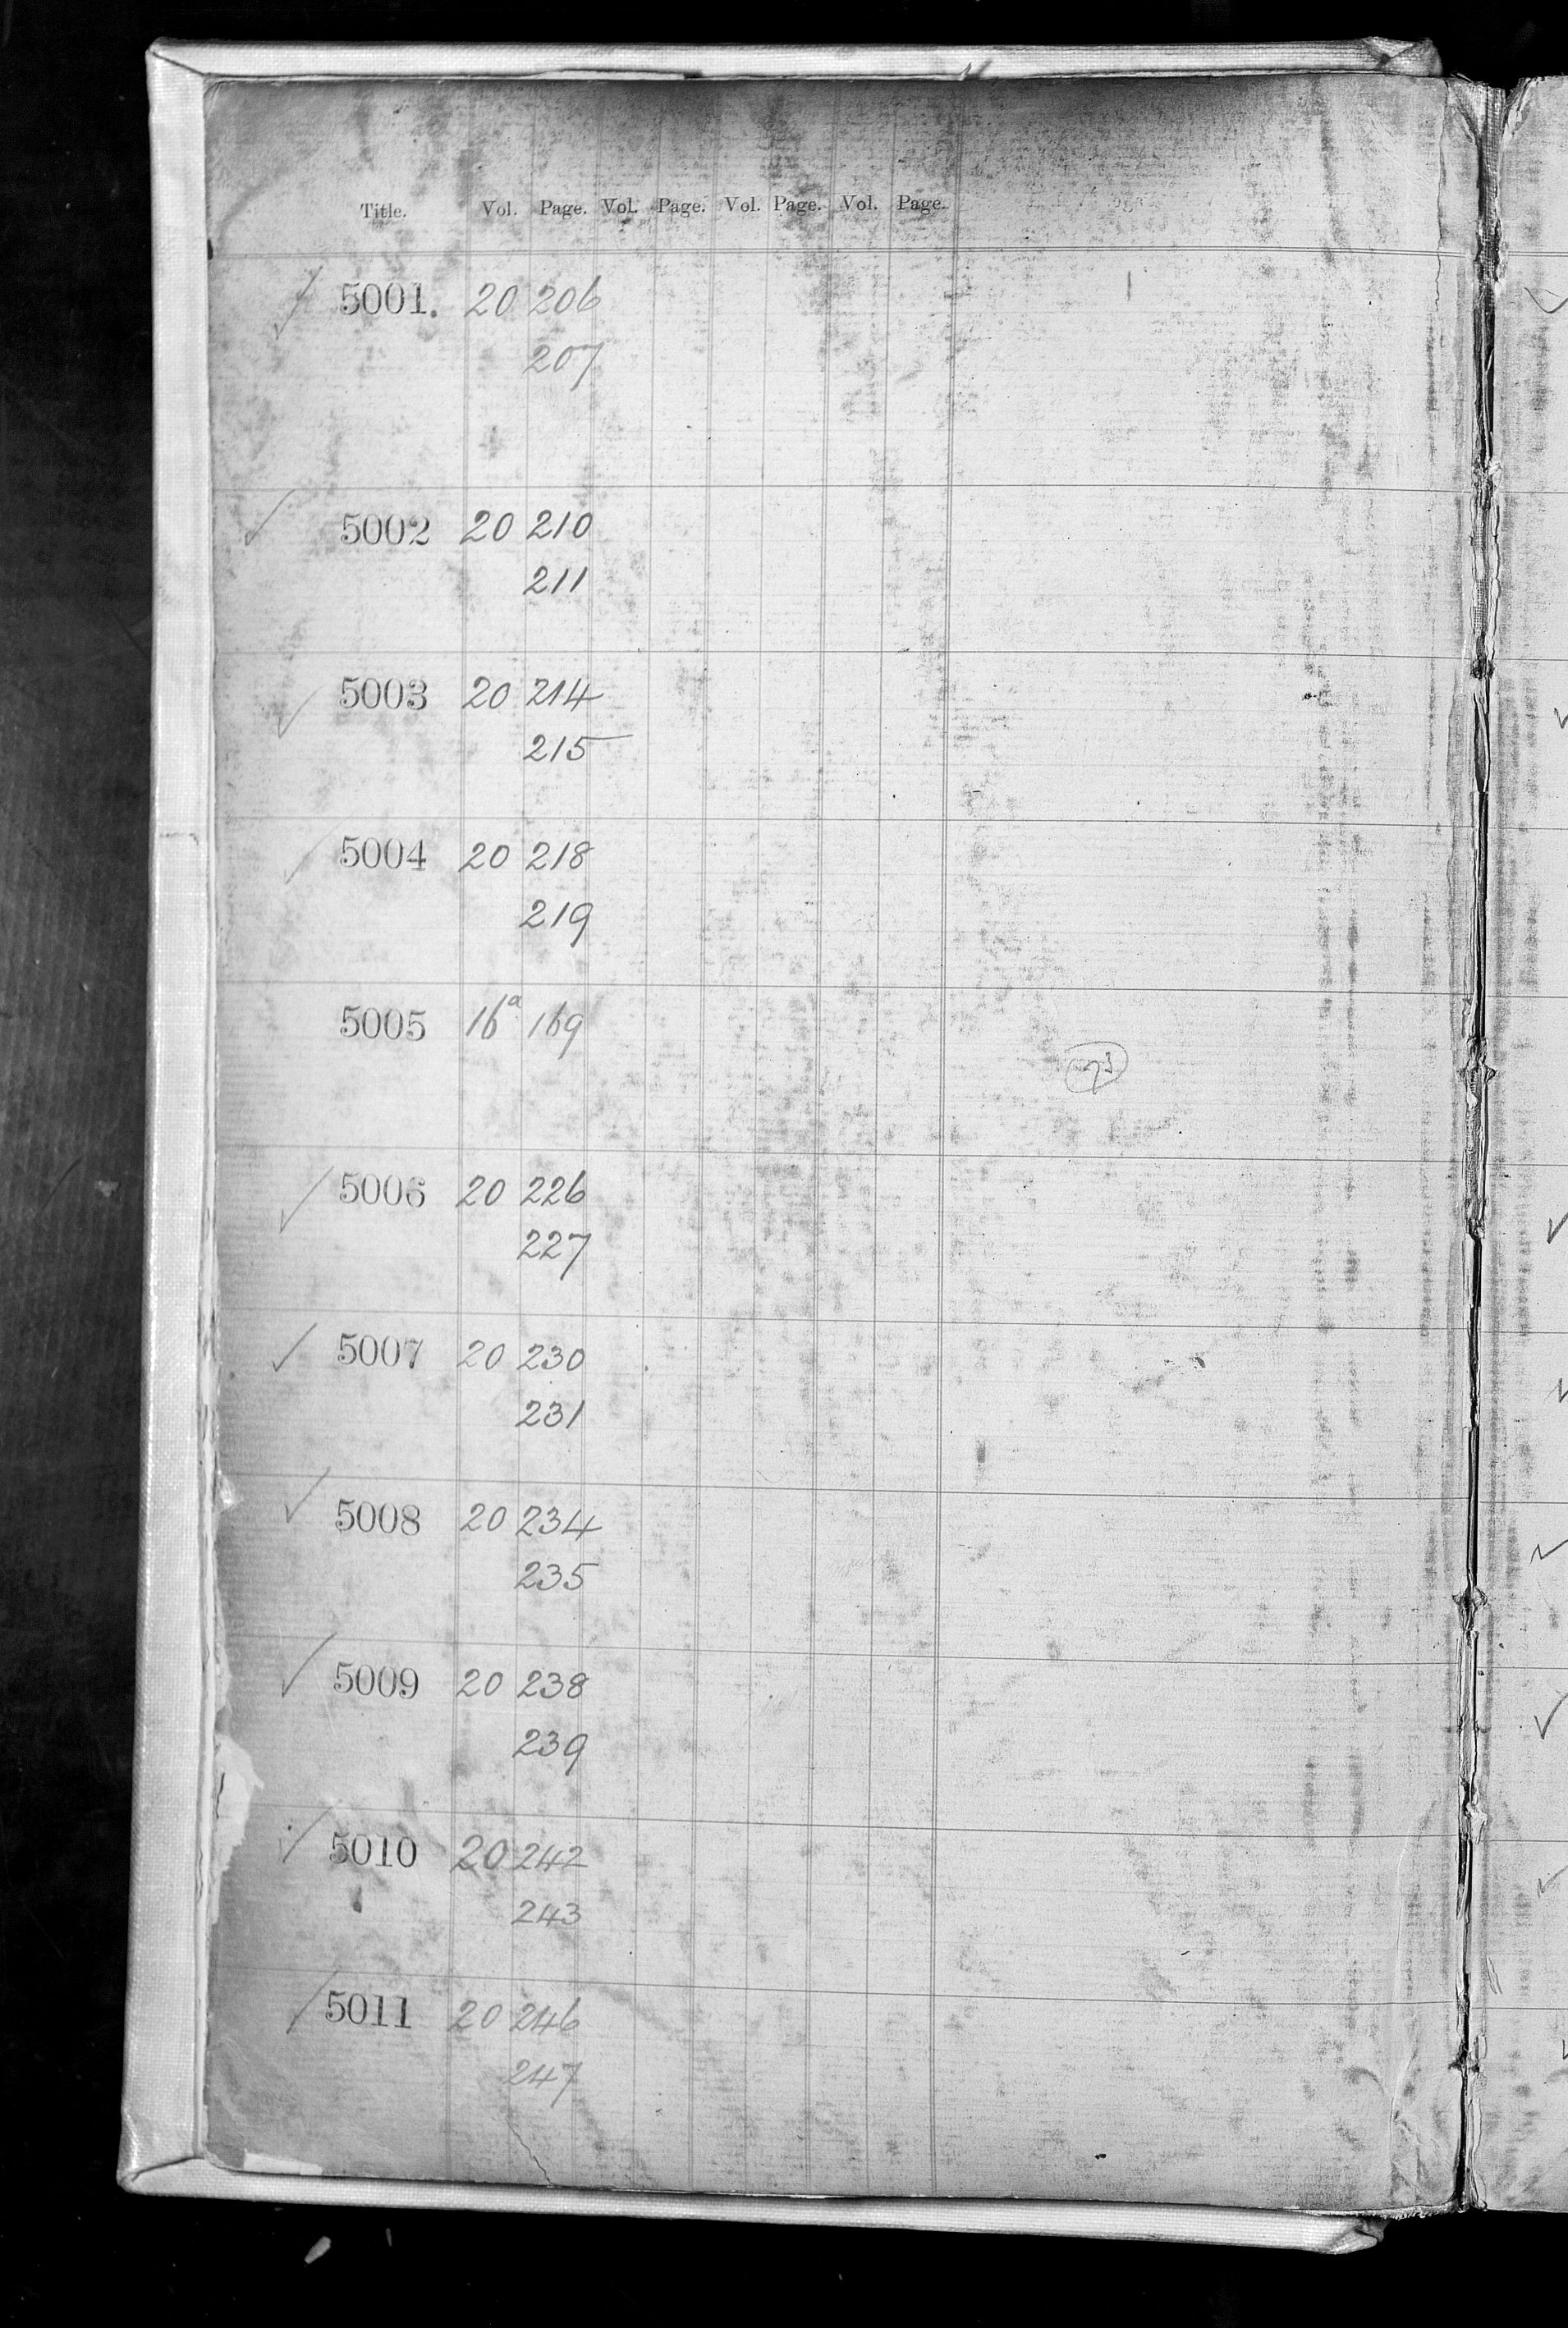 Title. Vol. Page. Vol. Page. Vol. Page. Vol. Page.
✓ 5001. 20 206
207
✓ 5002 20 210
211
✓ 5003 20 214
215
✓ 5004 20 218
219
5005 16a 169
✓ 5006 20 226
227
✓ 5007 20 230
231
✓ 5008 20 234
235
✓ 5009 20 238
239
✓ 5010 20 242
243
✓ 5011 20 246
247